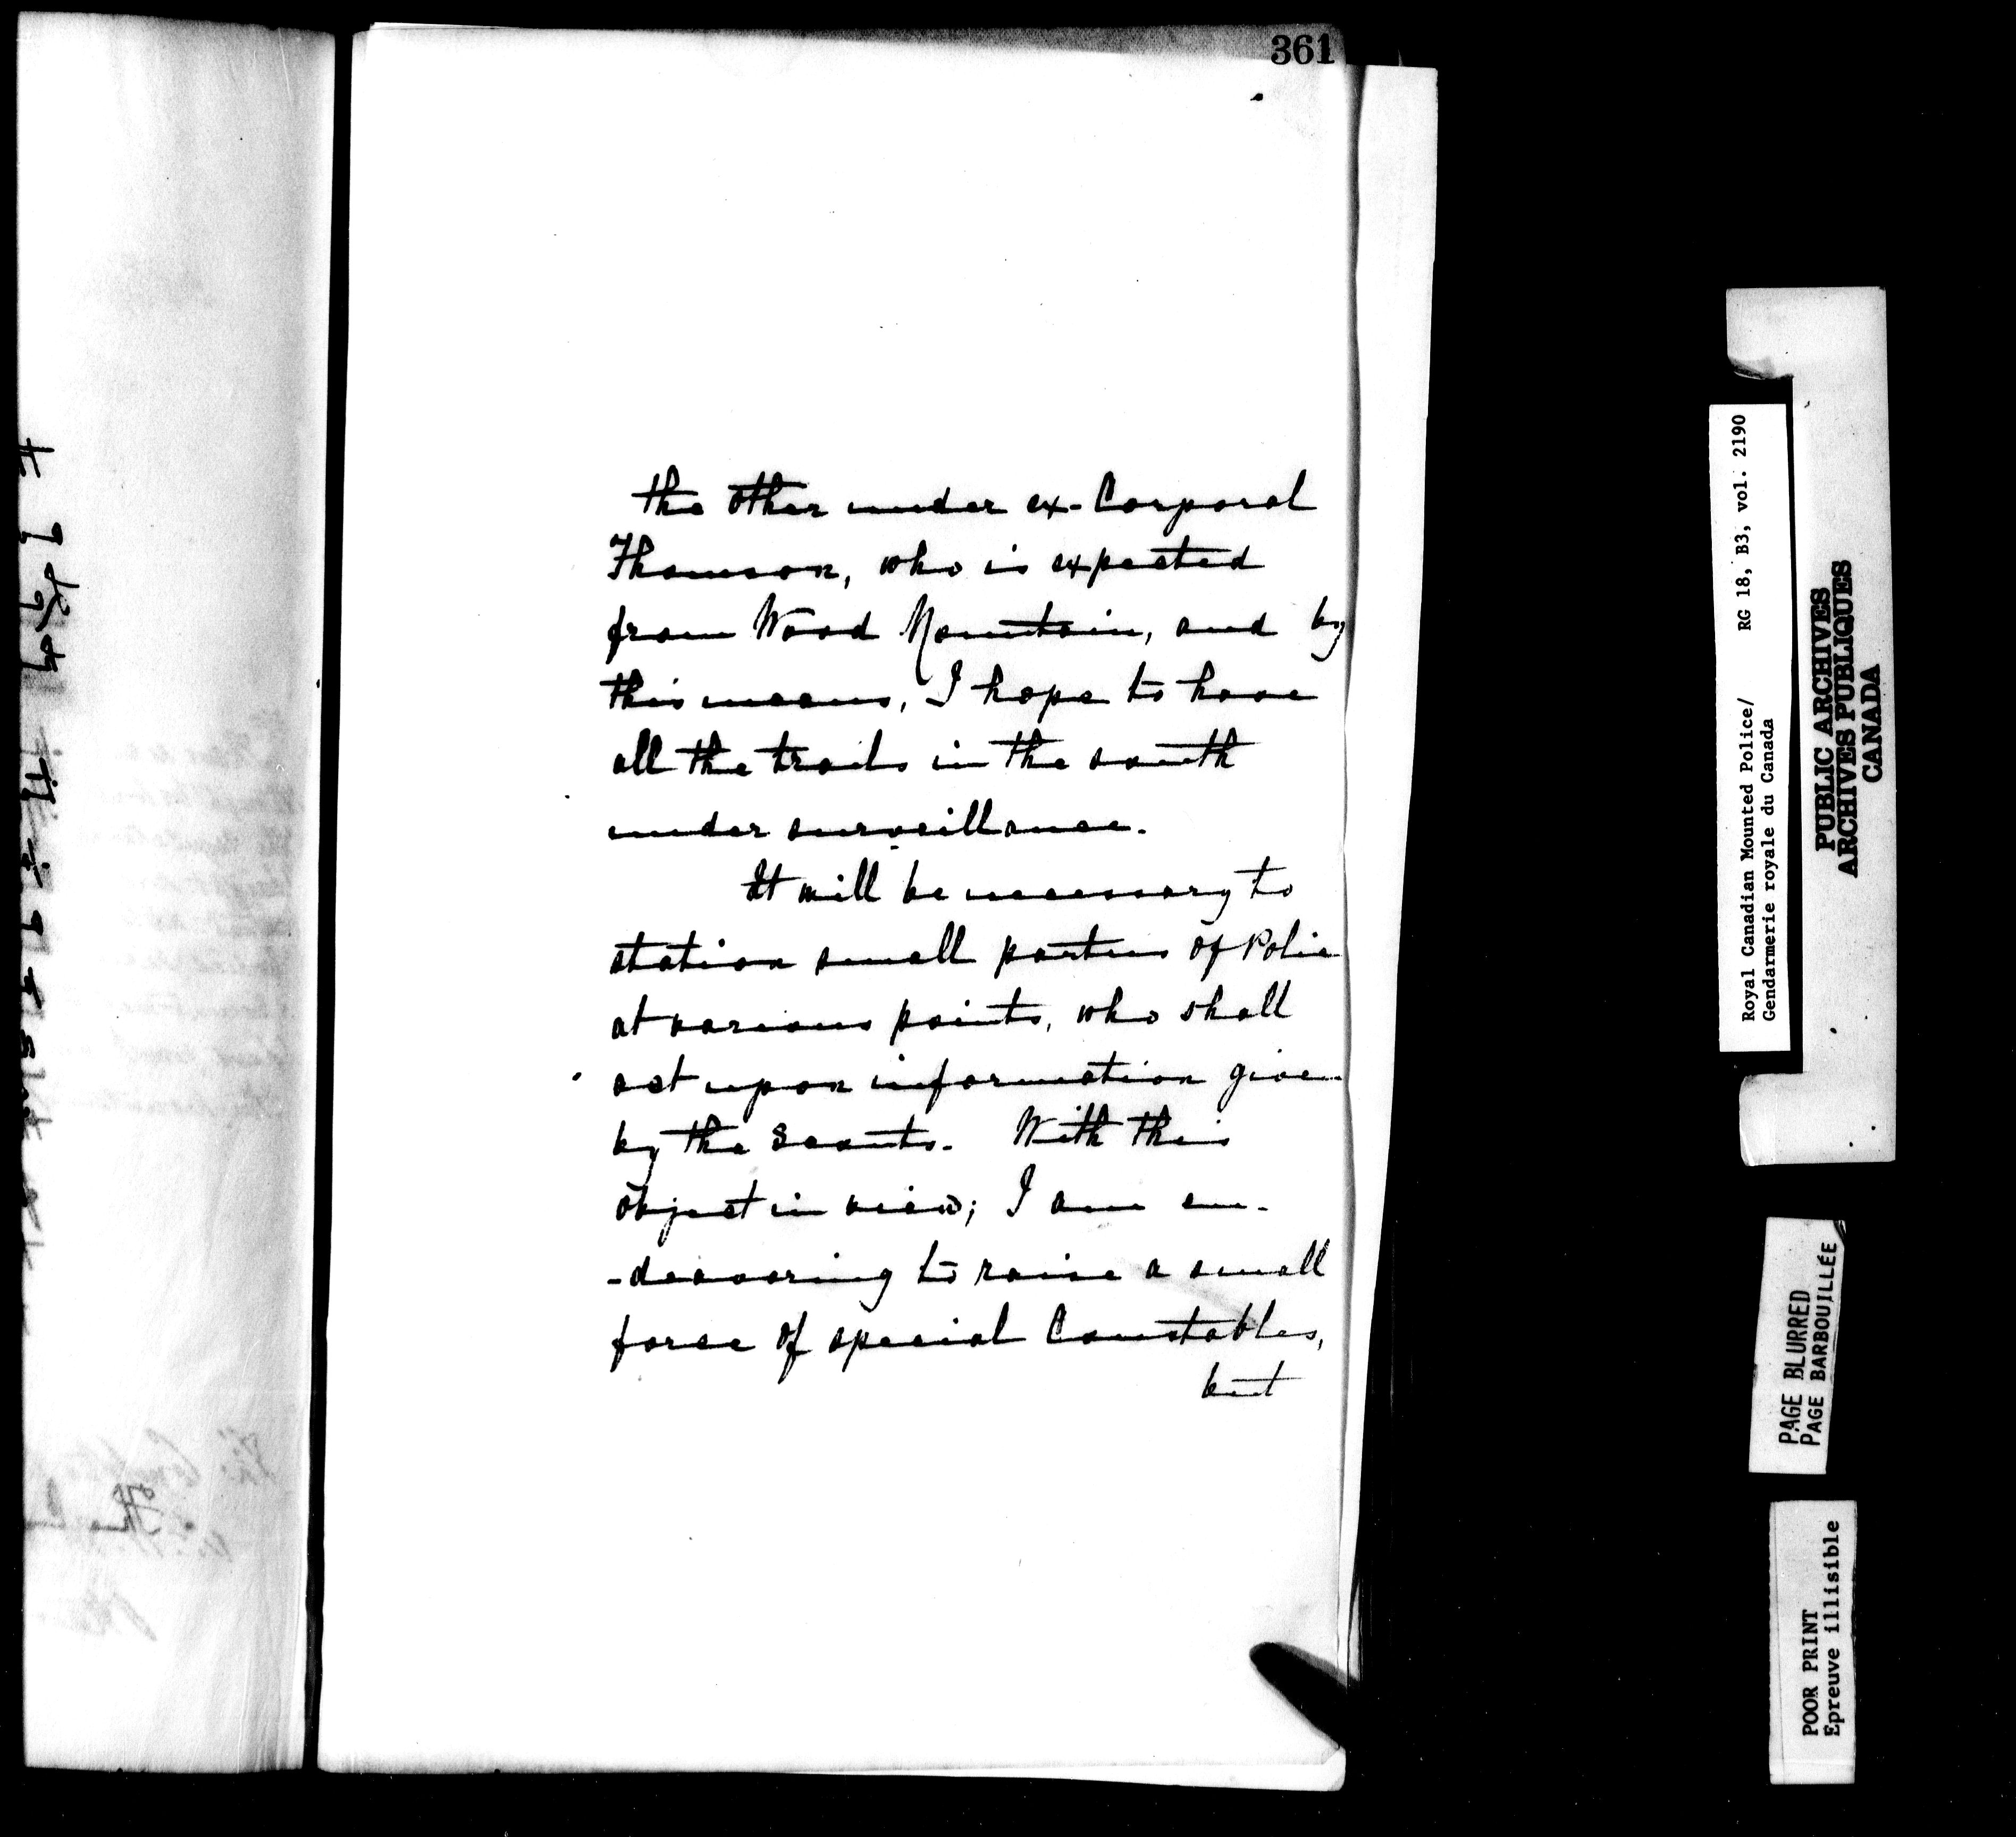 361
the other under ex-Corporal
Thomson, who is expected
from Wood Mountain, and by
this means, I hope to have
all the trails in the south
under surveillance.
It will be necessary to
station small parties of Police
at various points, who shall
act upon information given
by the Scouts. With this
object in view; I am en-
-deavoring to raise a small
force of special Constables,
but
Royal Canadian Mounted Police/ RG 18, B3, vol. 2190
Gendarmerie royale du Canada
PUBLIC ARCHIVES
ARCHIVES PUBLIQUES
CANADA
PAGE BLURRED
PAGE BARBOUILLÉE
POOR PRINT
Epreuve illisible